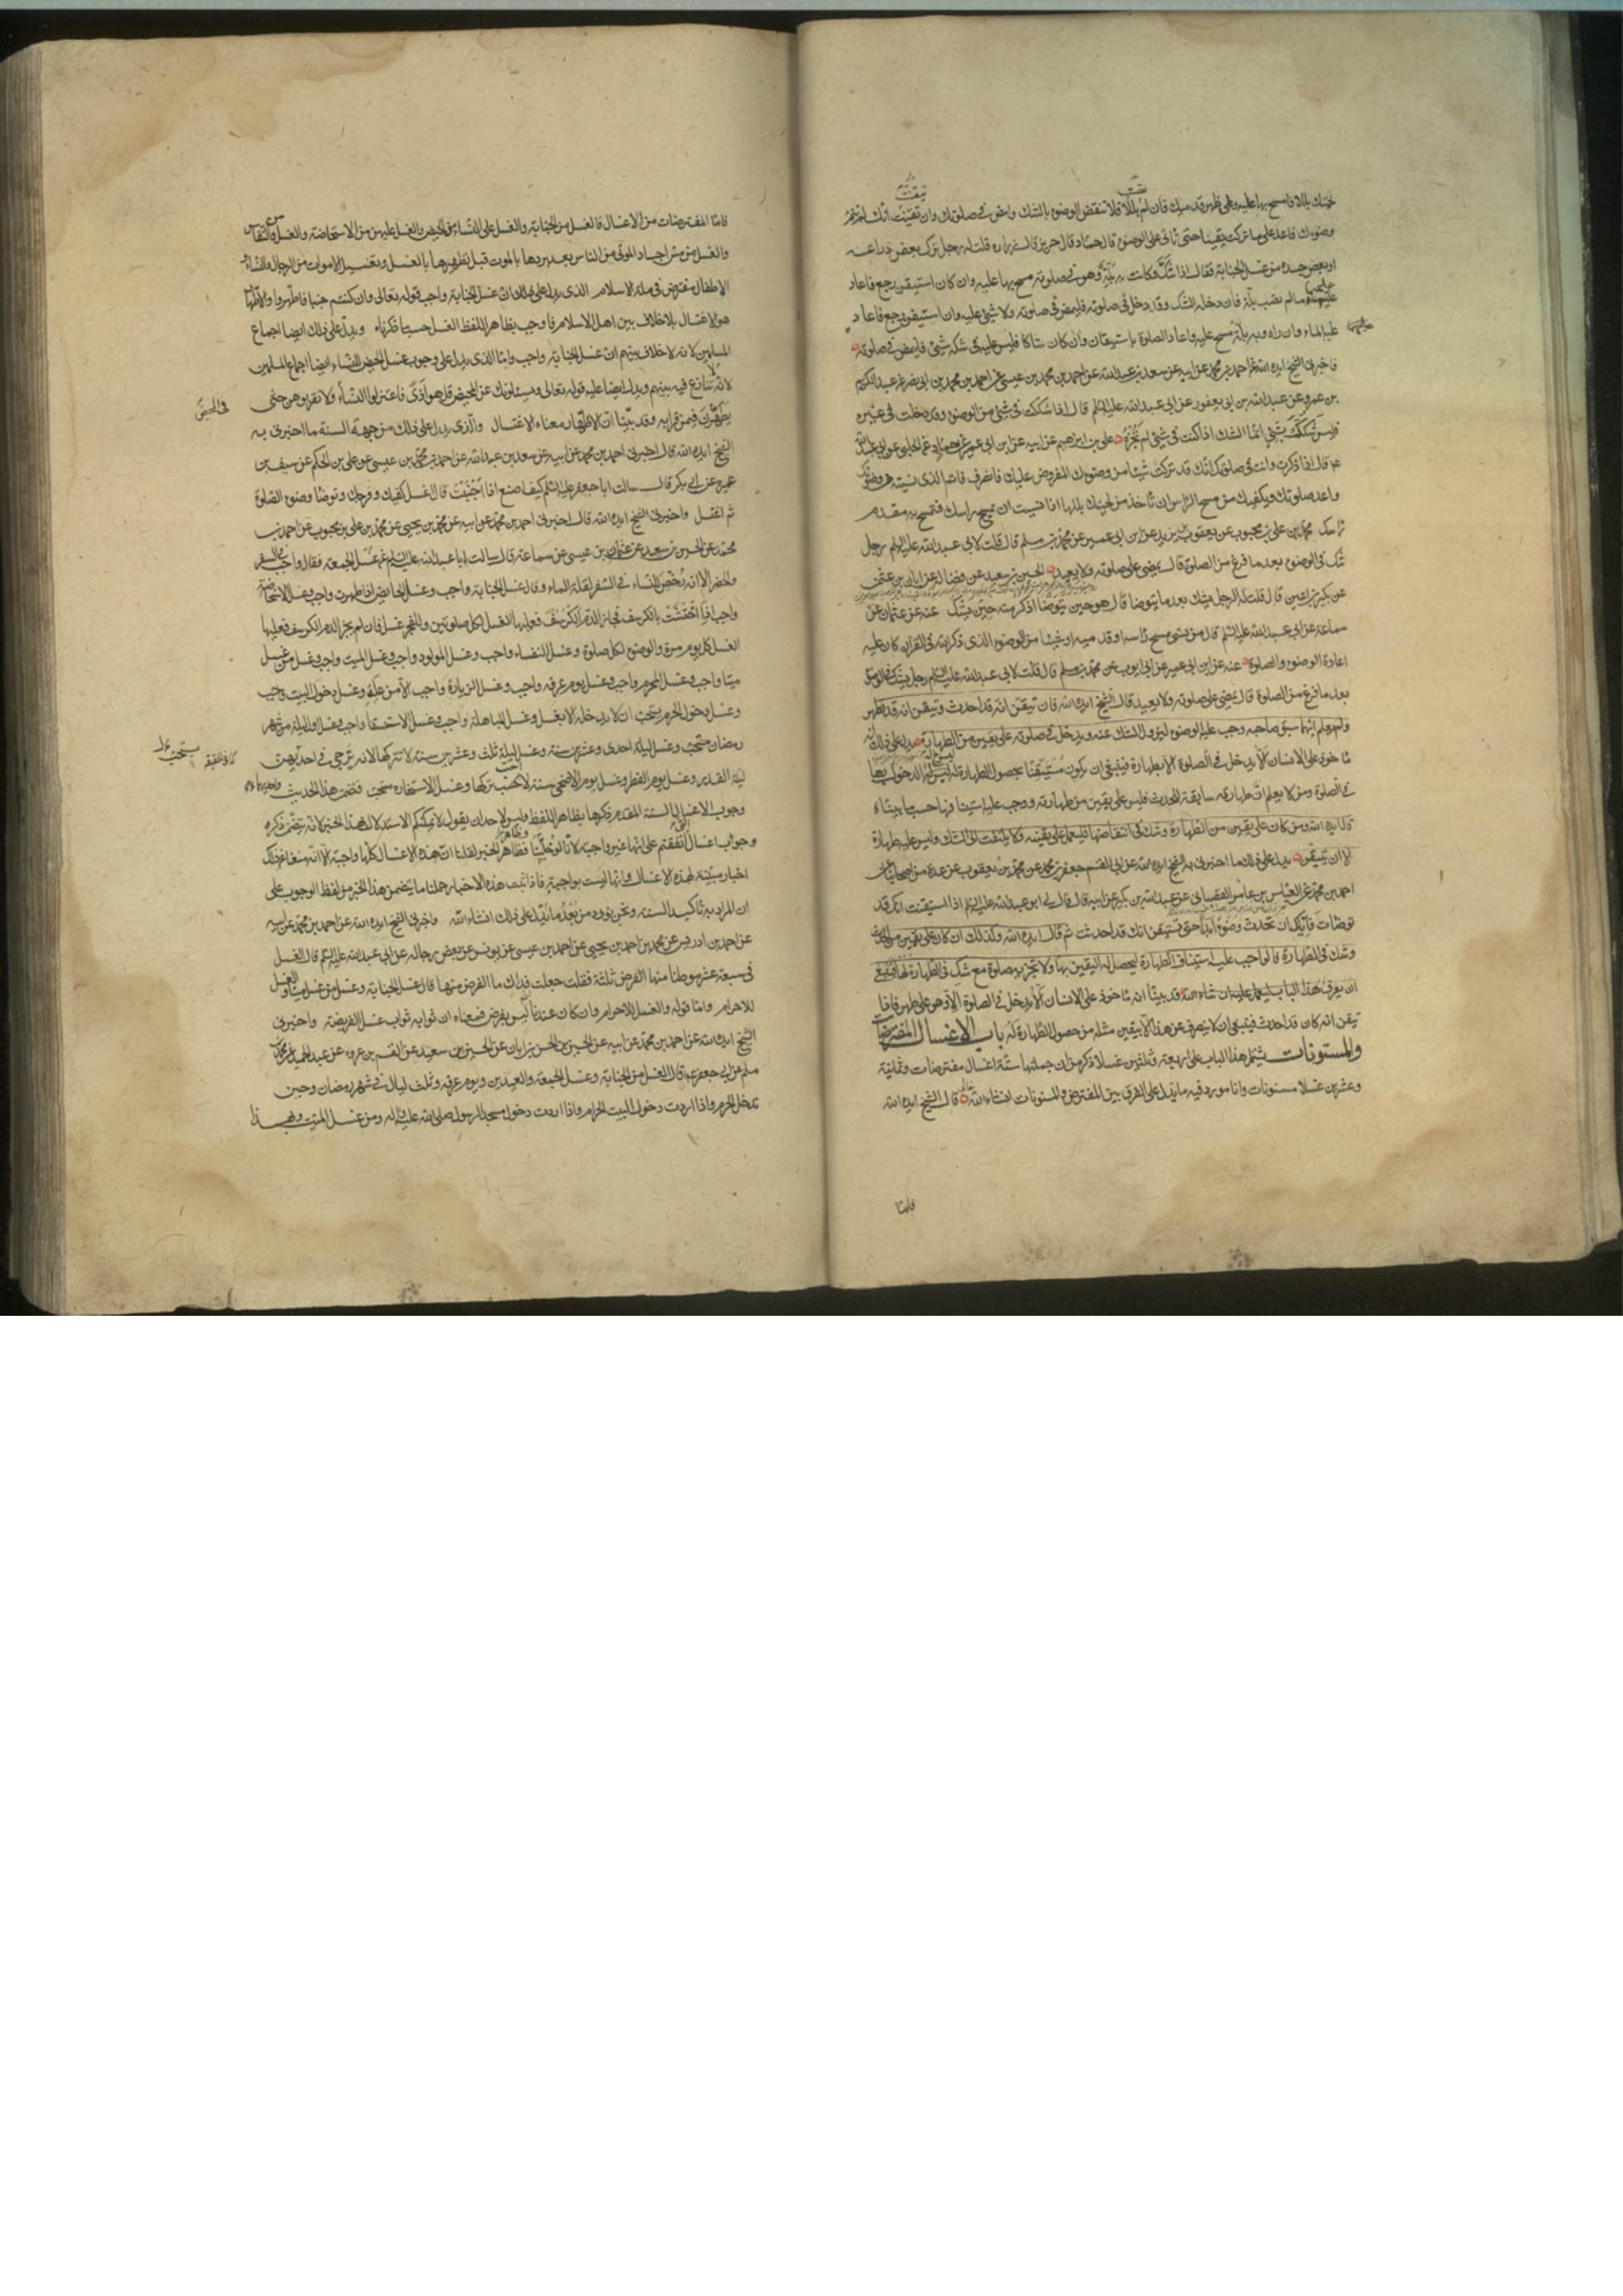 لحيتك بللا فامسح بها عليه وعلى ظهر قدميك فان لم تصب بللا فلا تنقض الوضوء بالشك وامض في صلوتك وان تيقنت انك لم تتم
وضوءك فاعد على ما تركت يقينا حتى تاتي على الوضوء قال حماد قال حريز قال زرارة قلت له رجل ترك بعض ذراعه
او بعض جسده من غسل الجنابة فقال اذا شك وكانت به بلة وهو في صلوته مسح بها عليه وان كان استيقن رجع فاعاد
عليهما ما لم يصب بلة فان دخله الشك وقد دخل في صلوته فليمض في صلوته ولا شيء عليه وان استيقن رجع فاعاد
عليه الماء وان راه وبه بلة مسح عليه واعاد الصلوة باستيقان وان كان شاكا فليس عليه في شكه شيء فليمض في صلوته
فاخبرني الشيخ ايده الله عن احمد بن محمد عن ابيه عن سعد بن عبد الله عن احمد بن محمد بن عيسى عن احمد بن محمد بن ابي نصر عن عبد الكريم
بن عمرو عن عبد الله بن ابي يعفور عن ابي عبد الله عليه السلم قال اذا شككت في شيء من الوضوء وقد دخلت في غيره
فليس شكك بشيء انما الشك اذا كنت في شيء لم تجزه علي بن ابرهيم عن ابيه عن ابن ابي عمير عن حماد عن الحلبي عن ابي عبد الله
قال اذا ذكرت وانت في صلوتك انك قد تركت شيئا من وضوءك المفروض عليك فانصرف فاتم الذي نسيته من وضوئك
واعد صلوتك ويكفيك من مسح الراس ان تاخذ من لحيتك بللها اذا نسيت ان تمسح براسك فتمسح به مقدم
راسك محمد بن علي بن محبوب عن يعقوب بن يزيد عن ابن ابي عمير عن محمد بن مسلم قال قلت لابي عبد الله عليه السلم رجل
شك في الوضوء بعد ما فرغ من الصلوة قال يمضي على صلوته ولا يعيد الحسين بن سعيد عن فضالة عن ابان بن عثمن
عن بكير بن اعين قال قلت له الرجل يشك بعد ما يتوضا قال هو حين يتوضا اذكر منه حين يشك عنه عن عثمان عن
سماعة عن ابي عبد الله عليه السلم قال من نسي مسح راسه او قدميه او شيئا من الوضوء الذي ذكره الله في القران كان عليه
اعادة الوضوء والصلوة عنه عن ابن ابي عمير عن ابي ايوب عن محمد بن مسلم قال قلت لابي عبد الله عليه السلم رجل يشك في الوضوء
بعد ما فرغ من الصلوة قال يمضي على صلوته ولا يعيد قال الشيخ ايده الله فان تيقن انه قد احدث وتيقن انه قد تطهر
ولم يعلم ايهما سبق صاحبه وجب عليه الوضوء ليزول الشك عنه ويدخل في صلوته على يقين من الطهارة يدل على ذلك انه
ماخوذ على الانسان الا يدخل في الصلوة الا بطهارة فينبغي ان يكون مستيقنا بحصول الطهارة له ليسوغ له الدخول بها
في الصلوة ومن لا يعلم ان طهارته سابقة للحدث فليس على يقين من طهارته ووجب عليه استينافها حسب ما بيناه
قال ايده الله ومن كان على يقين من الطهارة وشك في انتقاضها فليعمل على يقينه ولا يلتفت الى الشك وليس عليه طهارة
الا ان يتيقن يدل على ذلك ما اخبرني به الشيخ ايده الله عن ابي القسم جعفر بن محمد عن محمد بن يعقوب عن عدة من اصحابنا عن
احمد بن محمد عن العباس بن عامر القصباني عن عبد الله بن بكير عن ابيه قال قال لي ابو عبد الله عليه السلم اذا استيقنت انك قد
توضات فاياك ان تحدث وضوء ابدا حتى تستيقن انك قد احدثت ثم قال ايده الله وكذلك ان كان على يقين من الحدث
وشك في الطهارة فالواجب عليه استيناف الطهارة ليحصل له اليقين بها ولا تجزيه صلوة مع شك في الطهارة لها فينبغي
ان يعرف هذا الباب ليعمل عليه ان شاء الله قد بينا انه ماخوذ على الانسان الا يدخل في الصلوة الا وهو على طهر فاذا
تيقن انه كان قد احدث فينبغي ان لا ينصرف عن هذا الا بيقين مثله من حصول الطهارة له باب الاغسال المفترضات
والمسنونات يشتمل هذا الباب على اربعة وثلثين غسلا ذكر من ان جملتها ستة اغسال مفترضات وثمانية
وعشرين غسلا مسنونات وانا مورد فيه ما يدل على الفرق بين المفترض والمسنونات انشاء الله تعالى قال الشيخ ايده الله
فاما
فاما المفترضات من الاغسال فالغسل من الجنابة والغسل على النساء من الحيض والغسل عليهن من الاستحاضة والغسل من النفاس
والغسل من مس اجساد الموتى من الناس بعد بردها بالموت قبل تطهيرها بالغسل وتغسيل الاموات من الرجال والنساء
الاطفال مفترض في ملة الاسلام الذي يدل على ذلك ان غسل الجنابة واجب قوله تعالى وان كنتم جنبا فاطهروا والاطهار
هو الاغتسال بلا خلاف بين اهل الاسلام فاوجب بظاهر اللفظ الغسل حسبما ذكرناه ويدل على ذلك ايضا اجماع
المسلمين لانه لا خلاف بينهم ان غسل الجنابة واجب واما الذي يدل على وجوب غسل الحيض للنساء ايضا اجماع المسلمين
لانه لا تنازع فيه بينهم ويدل ايضا عليه قوله تعالى ويسئلونك عن المحيض قل هو اذى فاعتزلوا النساء ولا تقربوهن حتى
في المحيض
يطهرن فيمن قرا به وقد بينا ان الاطهار معناه الاغتسال والذي يدل على ذلك من جهة السنة ما اخبرني به
الشيخ ايده الله قال اخبرني احمد بن محمد عن ابيه عن سعد بن عبد الله عن احمد بن محمد بن عيسى عن علي بن الحكم عن سيف بن
عميرة عن ابي بكر قال سالت ابا جعفر عليه السلم كيف اصنع اذا اجنبت قال اغسل كفيك وفرجك وتوضا وضوء الصلوة
ثم اغتسل واخبرني الشيخ ايده الله قال اخبرني احمد بن محمد عن ابيه عن محمد بن يحيى عن محمد بن علي بن محبوب عن احمد بن
محمد عن الحسين بن سعيد عن عثمان بن عيسى عن سماعة قال سالت ابا عبد الله عليه السلم عن غسل الجمعة فقال واجب في السفر
والحضر الا انه رخص للنساء في السفر لقلة الماء وقال غسل الجنابة واجب وغسل الحايض اذا طهرت واجب وغسل الاستحاضة
واجب اذا احتشت بالكرسف فجاز الدم الكرسف فعليها الغسل لكل صلوتين وللفجر غسل فان لم يجز الدم الكرسف فعليها
الغسل كل يوم مرة والوضوء لكل صلوة وغسل النفساء واجب وغسل المولود واجب وغسل الميت واجب وغسل من غسل
ميتا واجب وغسل المحرم واجب وغسل يوم عرفة واجب وغسل الزيارة واجب الا من علة وغسل دخول البيت واجب
وغسل دخول الحرم يستحب ان لا يدخله الا بغسل وغسل المباهلة واجب وغسل الاستسقاء واجب وغسل اول ليلة من شهر
رمضان مستحب وغسل ليلة احدى وعشرين سنة وغسل ليلة ثلث وعشرين سنة لا تتركها لانه يرجى في احديهن
ليلة القدر وغسل يوم الفطر وغسل يوم الاضحى سنة لا احب تركها وغسل الاستخارة مستحب فتضمن هذا الحديث
وجوب الاغسال الستة المقدم ذكرها بظاهر اللفظ وليس لاحد ان يقول لا يمكنكم الاستدلال بهذا الخبر لانه يتضمن ذكره
وجوب اغسال اتفقتم على انها غير واجبة لانا لو خلينا وظاهر الخبر لقلنا ان هذه الاغسال كلها واجبة الا انه منعنا عن ذلك
اخبار مبينة لهذه الاغسال وانها ليست بواجبة فاذا ثبت هذه الاخبار حملنا ما يتضمن هذا الخبر من لفظ الوجوب على
ان المراد به تاكيد السنة ونحن نورد من بعد ما يدل على ذلك انشاء الله واخبرني الشيخ ايده الله عن احمد بن محمد عن ابيه
عن احمد بن ادريس عن محمد بن احمد بن يحيى عن احمد بن عيسى عن يونس عن بعض رجاله عن ابي عبد الله عليه السلم قال الغسل
في سبعة عشر موطنا منها الفرض ثلثة فقلت جعلت فداك ما الفرض منها قال غسل الجنابة وغسل من غسل ميتا والغسل
للاحرام واما قوله والغسل للاحرام وان كان عندنا ليس بفرض فمعناه ان ثوابه ثواب غسل الفريضة واخبرني
الشيخ ايده الله عن احمد بن محمد عن ابيه عن الحسين بن الحسن بن ابان عن الحسين بن سعيد عن القسم بن عروة عن عبد الحميد عن محمد بن
مسلم عن ابي جعفر ع قال الغسل من الجنابة وغسل الجمعة والعيدين ويوم عرفة وثلث ليال في شهر رمضان وحين
تدخل الحرم واذا اردت دخول البيت الحرام واذا اردت دخول مسجد الرسول صلى الله عليه واله ومن غسل الميت وبهذا